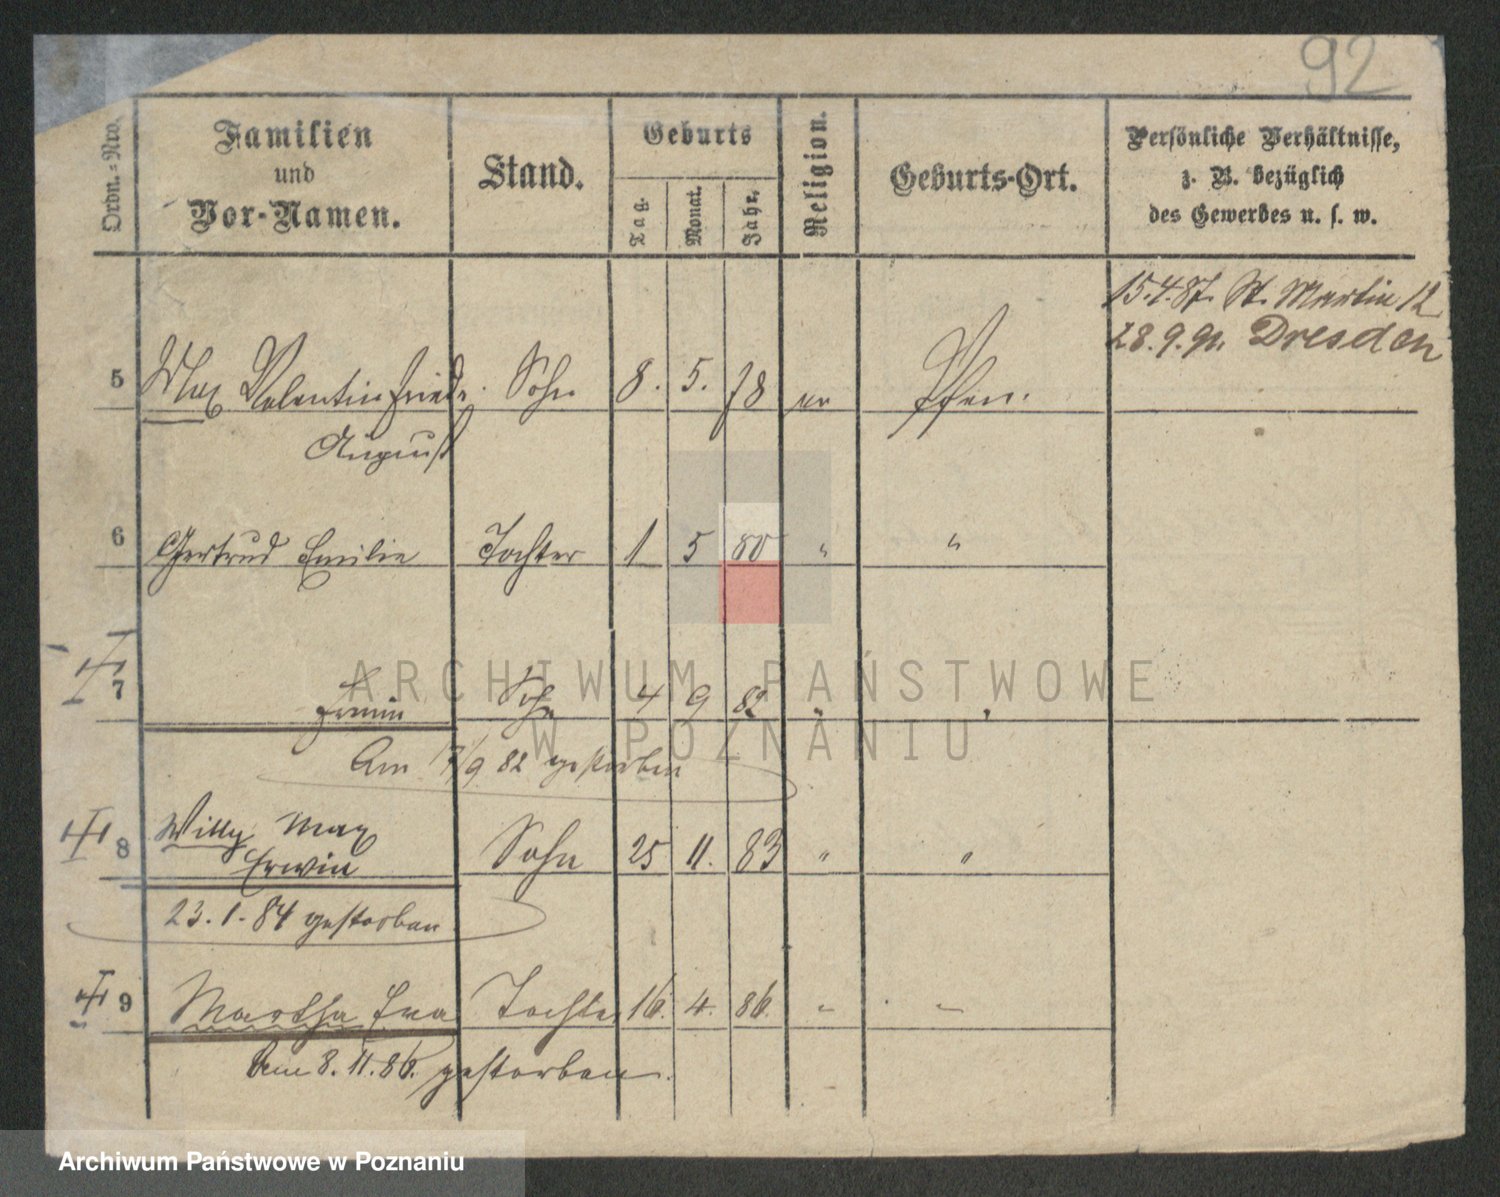 92
Ordn.=Nro.
Familien
und
Vor-Namen.
Stand.
Geburts
Tag.
Monat.
Jahr.
Religion.
Geburts-Ort.
Persönliche Verhältnisse,
z. B. bezüglich
des Gewerbes u. s. w.
15.4.87. St. Martin 12
28.9.91. Dresden
5 Max Valentin Friedr. Sohn 8. 5. 78 ev Posen.
August
6 Gertrud Emilie Tochter 1 5 80 " "
7 Erwin Sohn 4 9 82 "
Am 17/9 82 gestorben
8 Willy Max
Erwin Sohn 25 11. 83 " "
23.1.84 gestorben
9 Martha Eva Tochter 16. 4. 86. " "
Am 8.11.86. gestorben.
ARCHIWUM PAŃSTWOWE
W POZNANIU
Archiwum Państwowe w Poznaniu